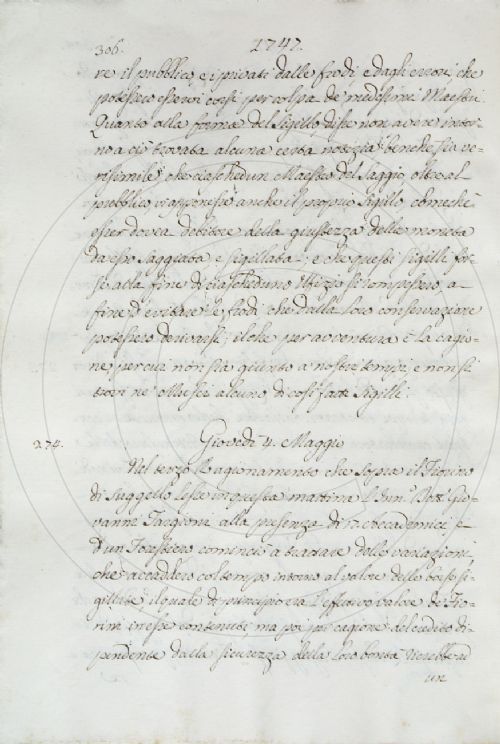 306.
1747.
re il pubblico, e i privati dalle frodi, e dagli errori, che
potessero esservi corsi per colpa de' medesimi Maestri.
Quanto alla forma del Sigillo, disse non avere intor-
no a ciò trovata alcuna certa notizia, benchè sia ve-
risimile, che ciaschedun Maestro del Saggio, oltre al
pubblico, vi apponesse anche il proprio Sigillo, come che
esser dovea debitore della giustezza della moneta
da esso saggiata e sigillata; e che questi sigilli for-
se alla fine di ciascheduno Ufizzo si rompessero, a
fine d'evitare le frodi, che dalla loro conservazione
potessero derivarsi; il che per avventura è la cagio-
ne, per cui non sia giunto a' nostri tempi, e non si
trovi ne' Musei alcuno di così fatti Sigilli.
274.
Giovedì 4. Maggio
Nel terzo Ragionamento che sopra il Fiorino
di Suggello lesse in questa mattina l'Ann.º Dott. Gio-
vanni Targioni alla presenza di 12. Accademici e
d'un Forestiero cominciò a trattare delle variazioni
che accaddero col tempo intorno al valore delle borse si-
gillate, il quale da principio era l'effettivo valore de' Fio-
rini in esse contenuti, ma poi per cagione del credito di-
pendente dalla sicurezza della loro bontà verebbe ad
un